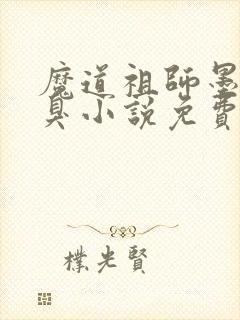 魔道祖師墨
臭小説免費
樸光賢